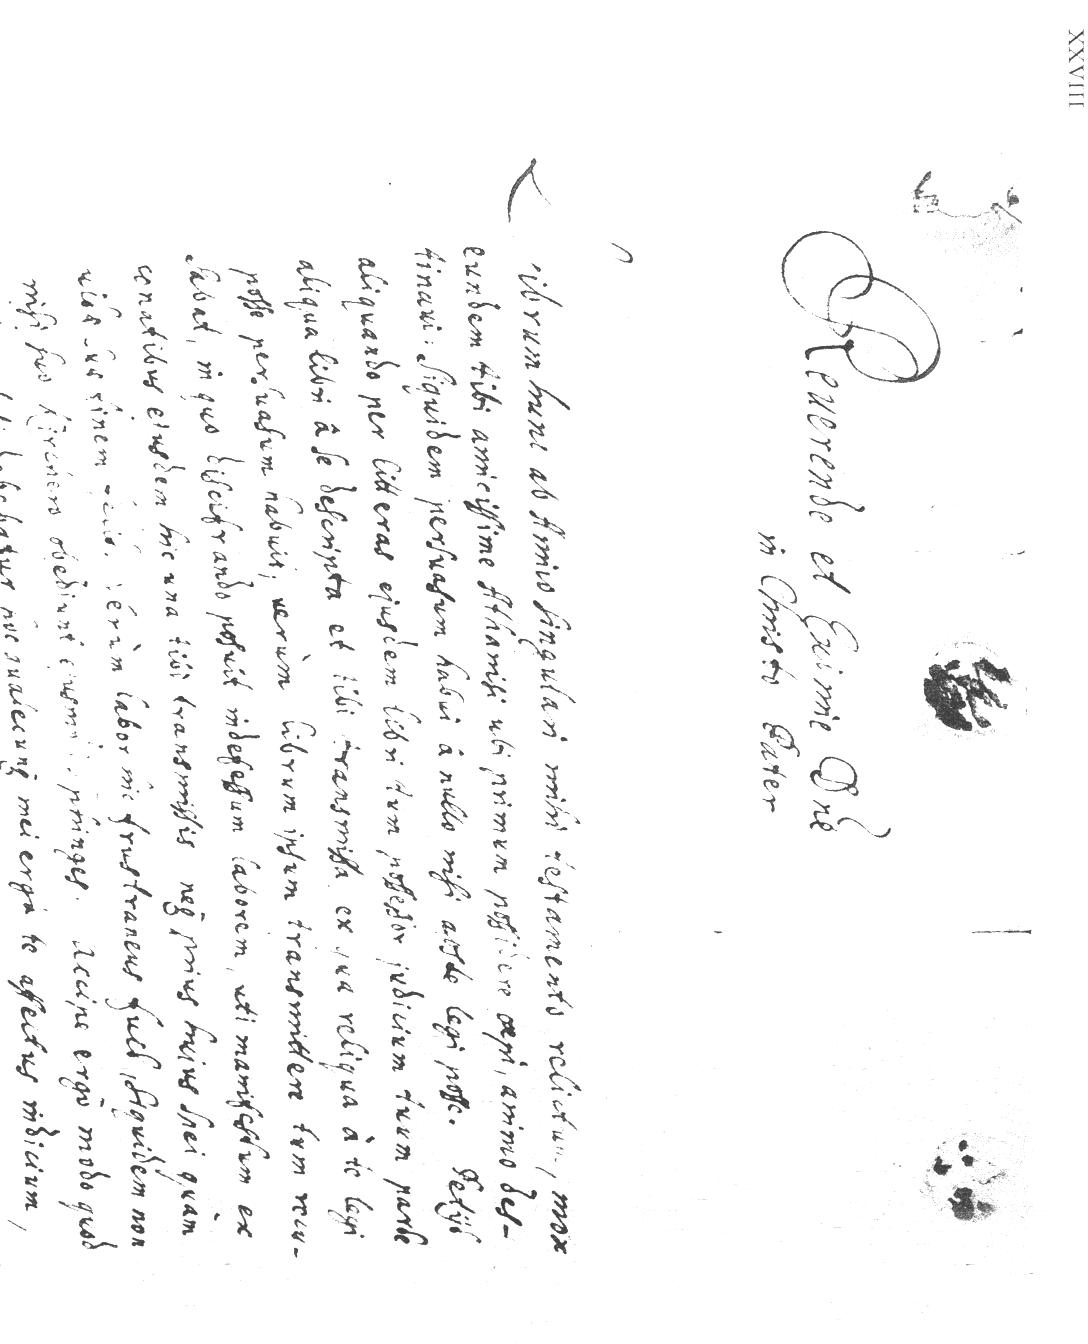 XXVIII
Reuerende et Eximie Dñe
in Christo Pater
ibrum hunc ab Amico singulari mihi testamento relictum, mox
eundem tibi amicissime Athanasi ubi primum possidere cœpi, animo des-
tinavi: siquidem persuasum habui à nullo nisi abs te legi posse. Petijt
aliquando per litteras ejusdem libri tum possessor judicium tuum parte
aliqua libri à se descripta et tibi transmissa ex qua reliqua à te legi
posse persuasum habuit; verùm librum ipsum transmittere tum recu-
sabat, in quo discifrando posuit indefessum laborem, uti manifestum ex
conatibus eiusdem hic una tibi transmissis neq̃ prius huius spei quam
vitæ suæ finem fecit. verùm labor hic frustraneus fuit, siquidem non
nisi suo Kirchero obediunt eiusmodi sphinges. accipe ergò modò quod
tibi debebatur hoc qualecunq̃ mei ergà te affectus indicium,